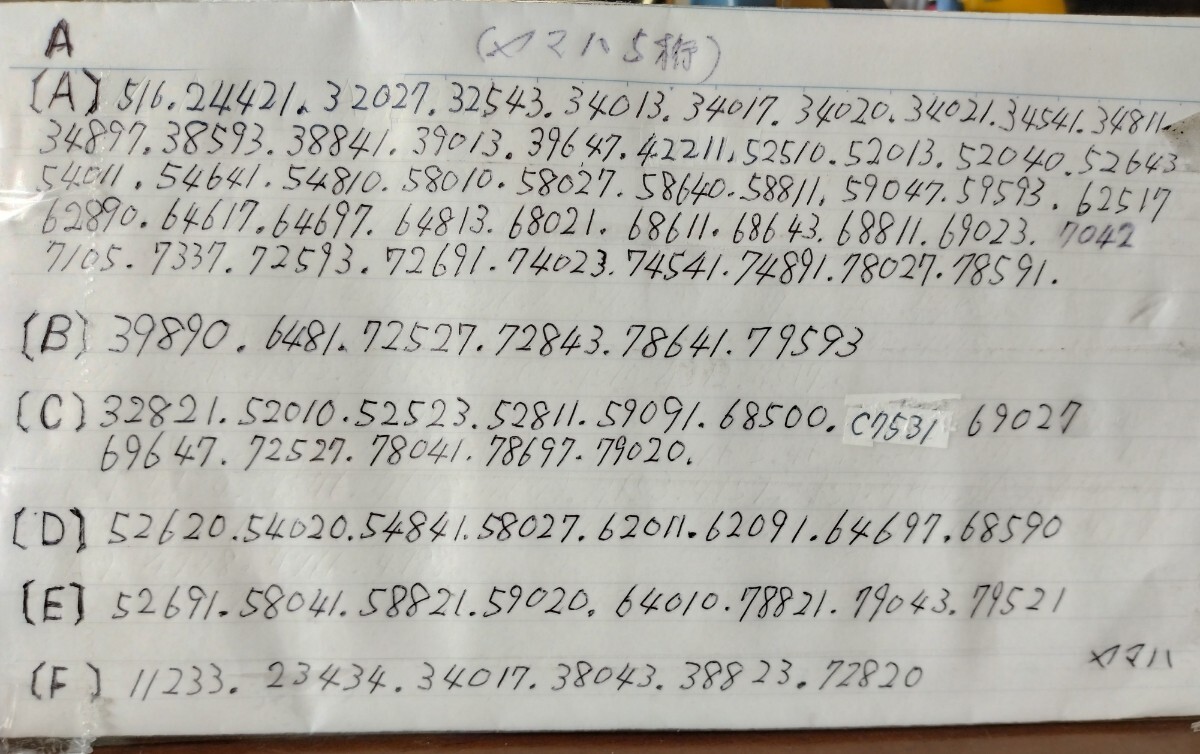 A
(ヤマハ5桁)
[A] 516.24421.32027.32543.34013.34017.34020.34021.34541.34811.
34897.38593.38841.39013.39647.42211.52510.52013.52040.52643
54011.54641.54810.58010.58027.58640.58811.59047.59593.62517
62890.64617.64697.64813.68021.68611.68643.68811.69023.7042
7105.7337.72593.72691.74023.74541.74891.78027.78591.
[B] 39890.6481.72527.72843.78641.79593
[C] 32821.52010.52523.52811.59091.68500.C7531 69027
69647.72527.78041.78697.79020.
[D] 52620.54020.54841.58027.62011.62091.64697.68590
[E] 52691.58041.58821.59020.64010.78821.79043.79521
[F] 11233.23434.34017.38043.38823.72820
ヤマハ